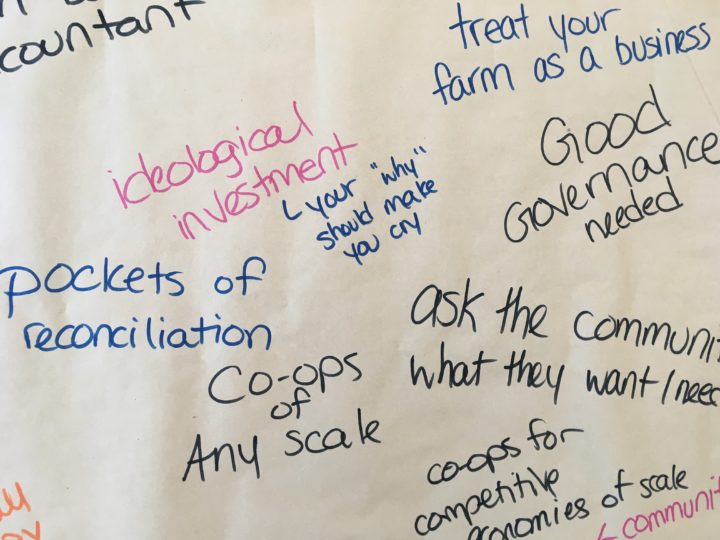 countant
treat your
farm as a business
ideological
investment
your "why"
should make
you cry
Good
Governance
needed
pockets of
reconciliation
ask the communi
what they want/need
Co-ops
of
Any scale
co-ops for
competitive
economies of scale
communit